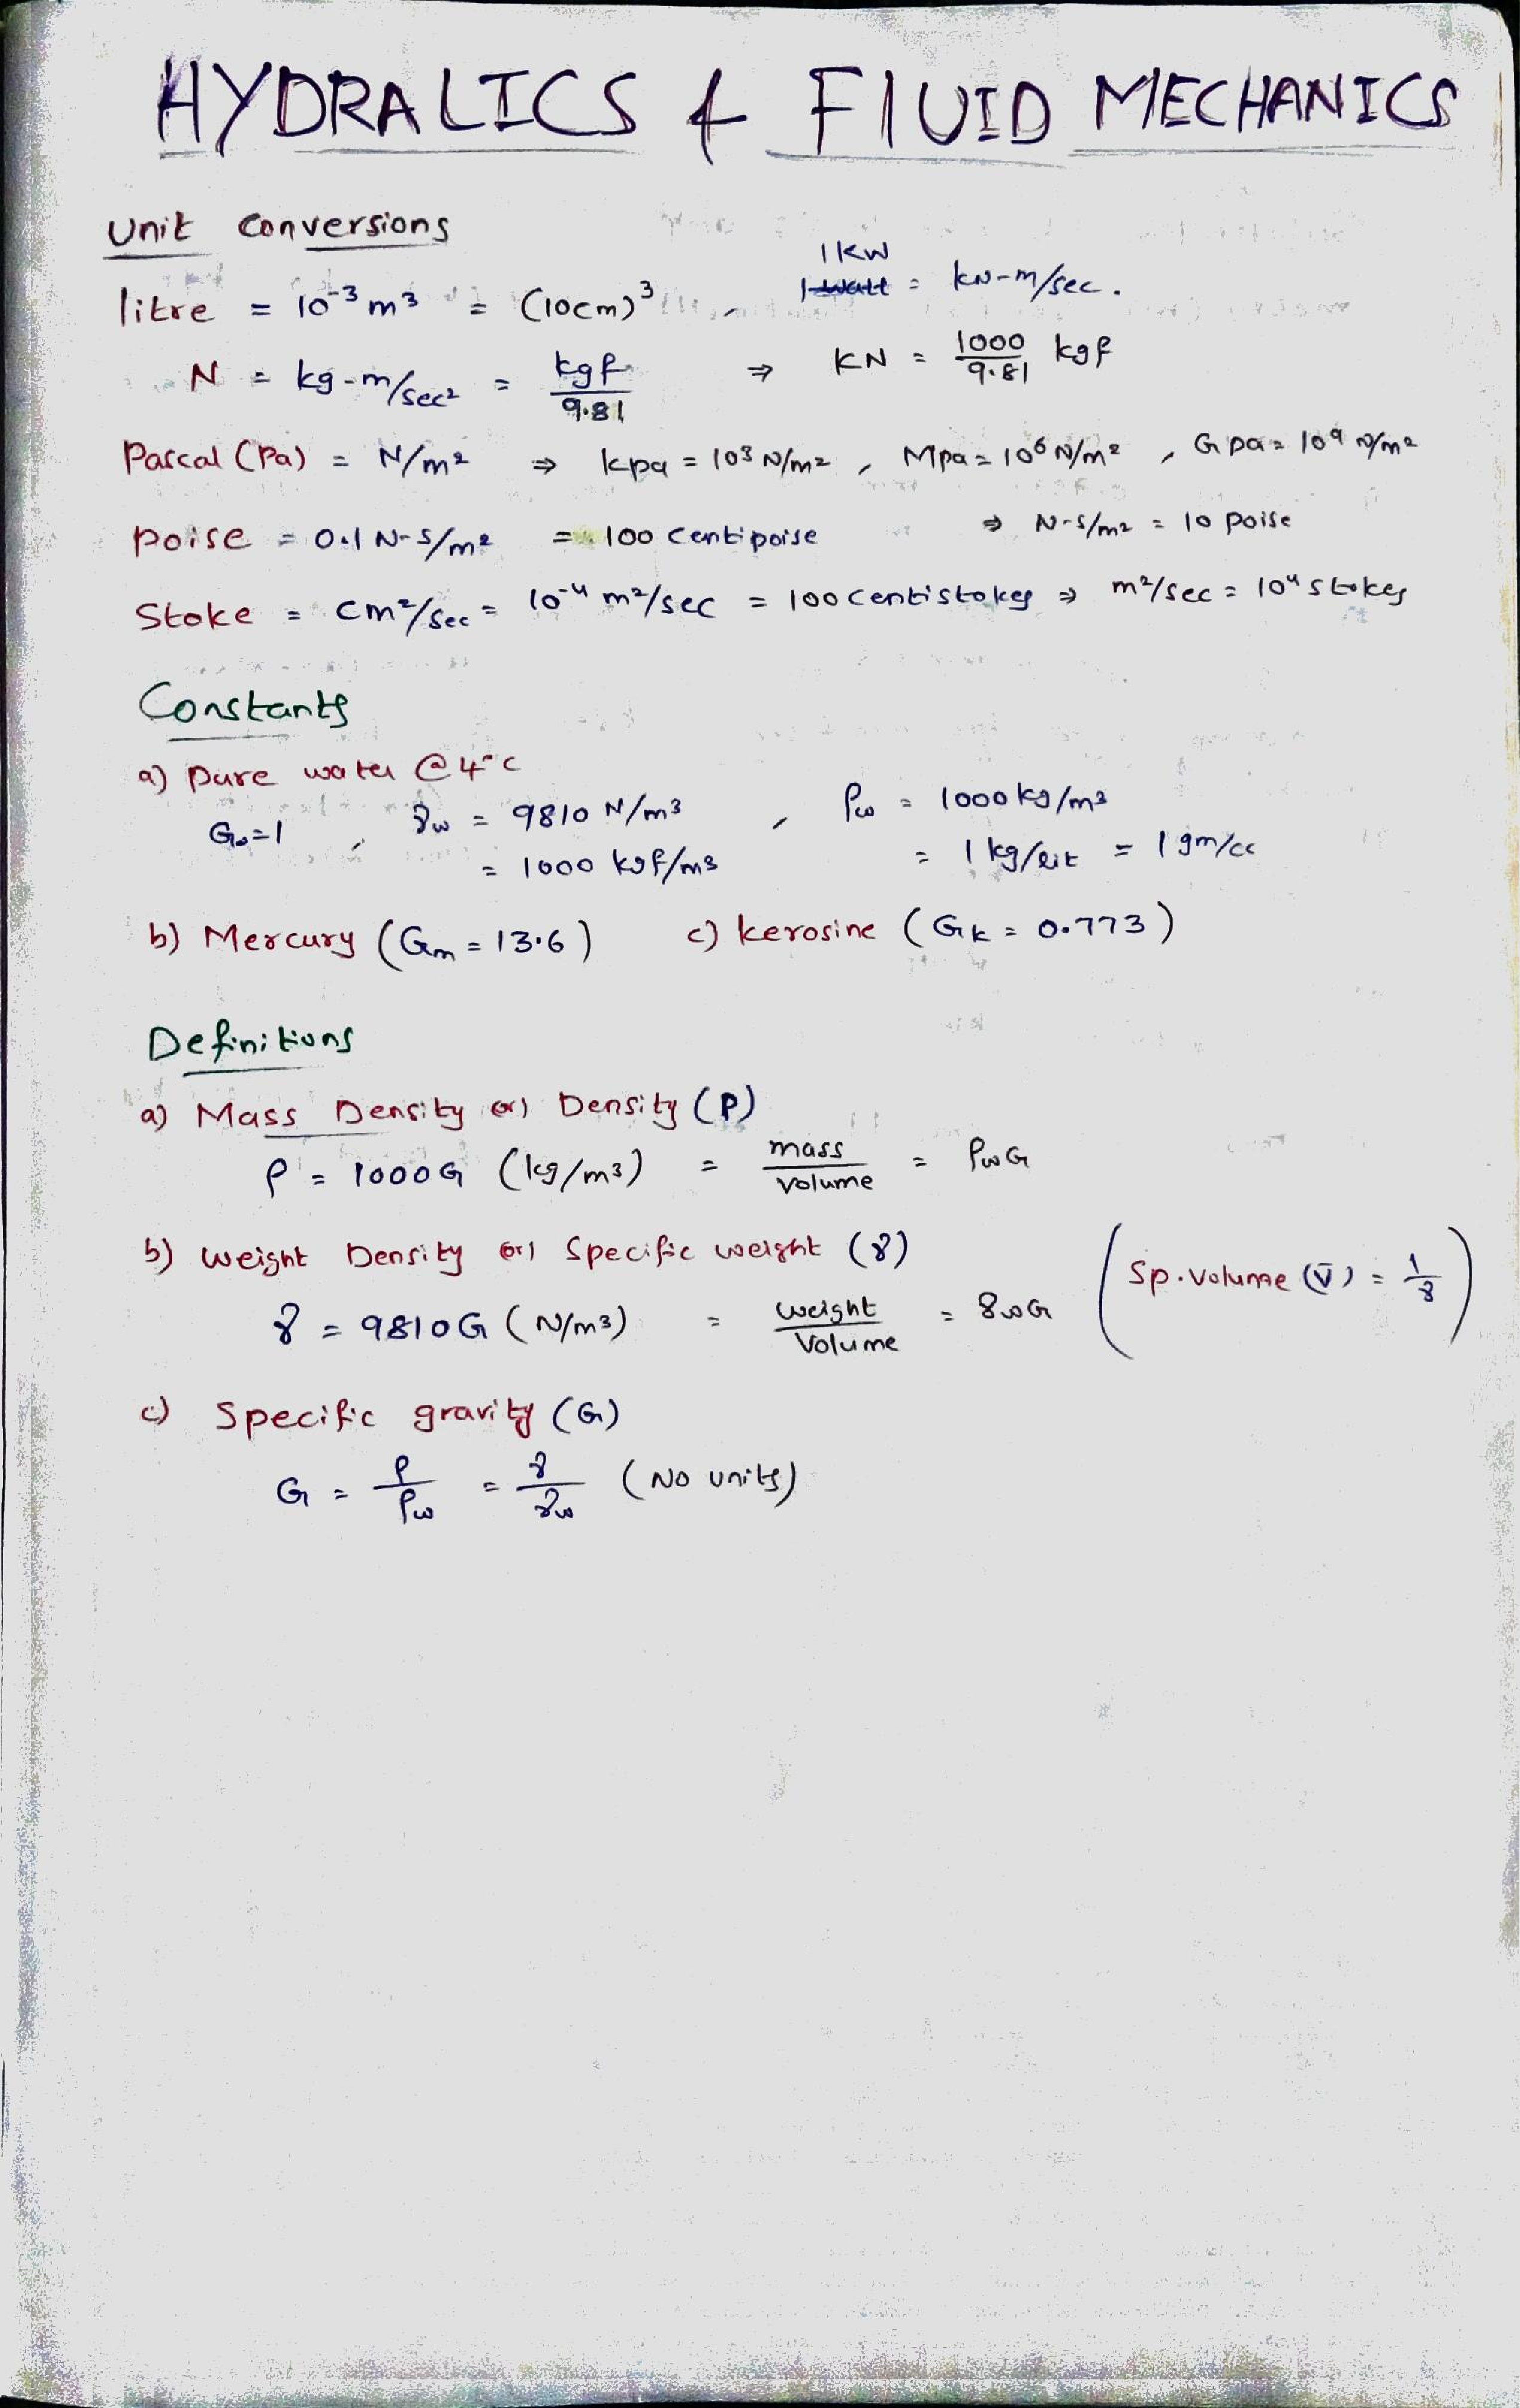 HYDRALICS & FLUID MECHANICS
Unit Conversions
litre = 10⁻³ m³ = (10cm)³ , 1 kW = kN-m/sec.
N = kg-m/sec² = kgf/9.81 ⇒ KN = 1000/9.81 kgf
Pascal (Pa) = N/m² ⇒ kpa = 10³ N/m² , Mpa = 10⁶ N/m² , Gpa = 10⁹ N/m²
poise = 0.1 N-s/m² = 100 centipoise ⇒ N-s/m² = 10 poise
Stoke = cm²/sec = 10⁻⁴ m²/sec = 100 centistokes ⇒ m²/sec = 10⁴ stokes
Constants
a) pure water @4°c
Gω=1 , γω = 9810 N/m³ , ρω = 1000 kg/m³
= 1000 kgf/m³ = 1 kg/lit = 1 gm/cc
b) Mercury (Gm = 13.6) c) kerosine (Gk = 0.773)
Definitions
a) Mass Density (or) Density (ρ)
ρ = 1000G (kg/m³) = mass/volume = ρωG
b) weight Density (or) Specific weight (γ)
γ = 9810G (N/m³) = weight/Volume = γωG (Sp. volume (v̄) = 1/γ)
c) Specific gravity (G)
G = ρ/ρω = γ/γω (No units)